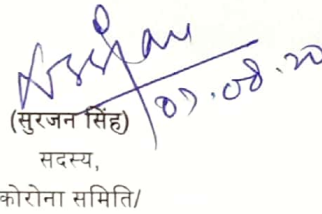 07.08.20
(सुरजन सिंह)
सदस्य,
कोरोना समिति/